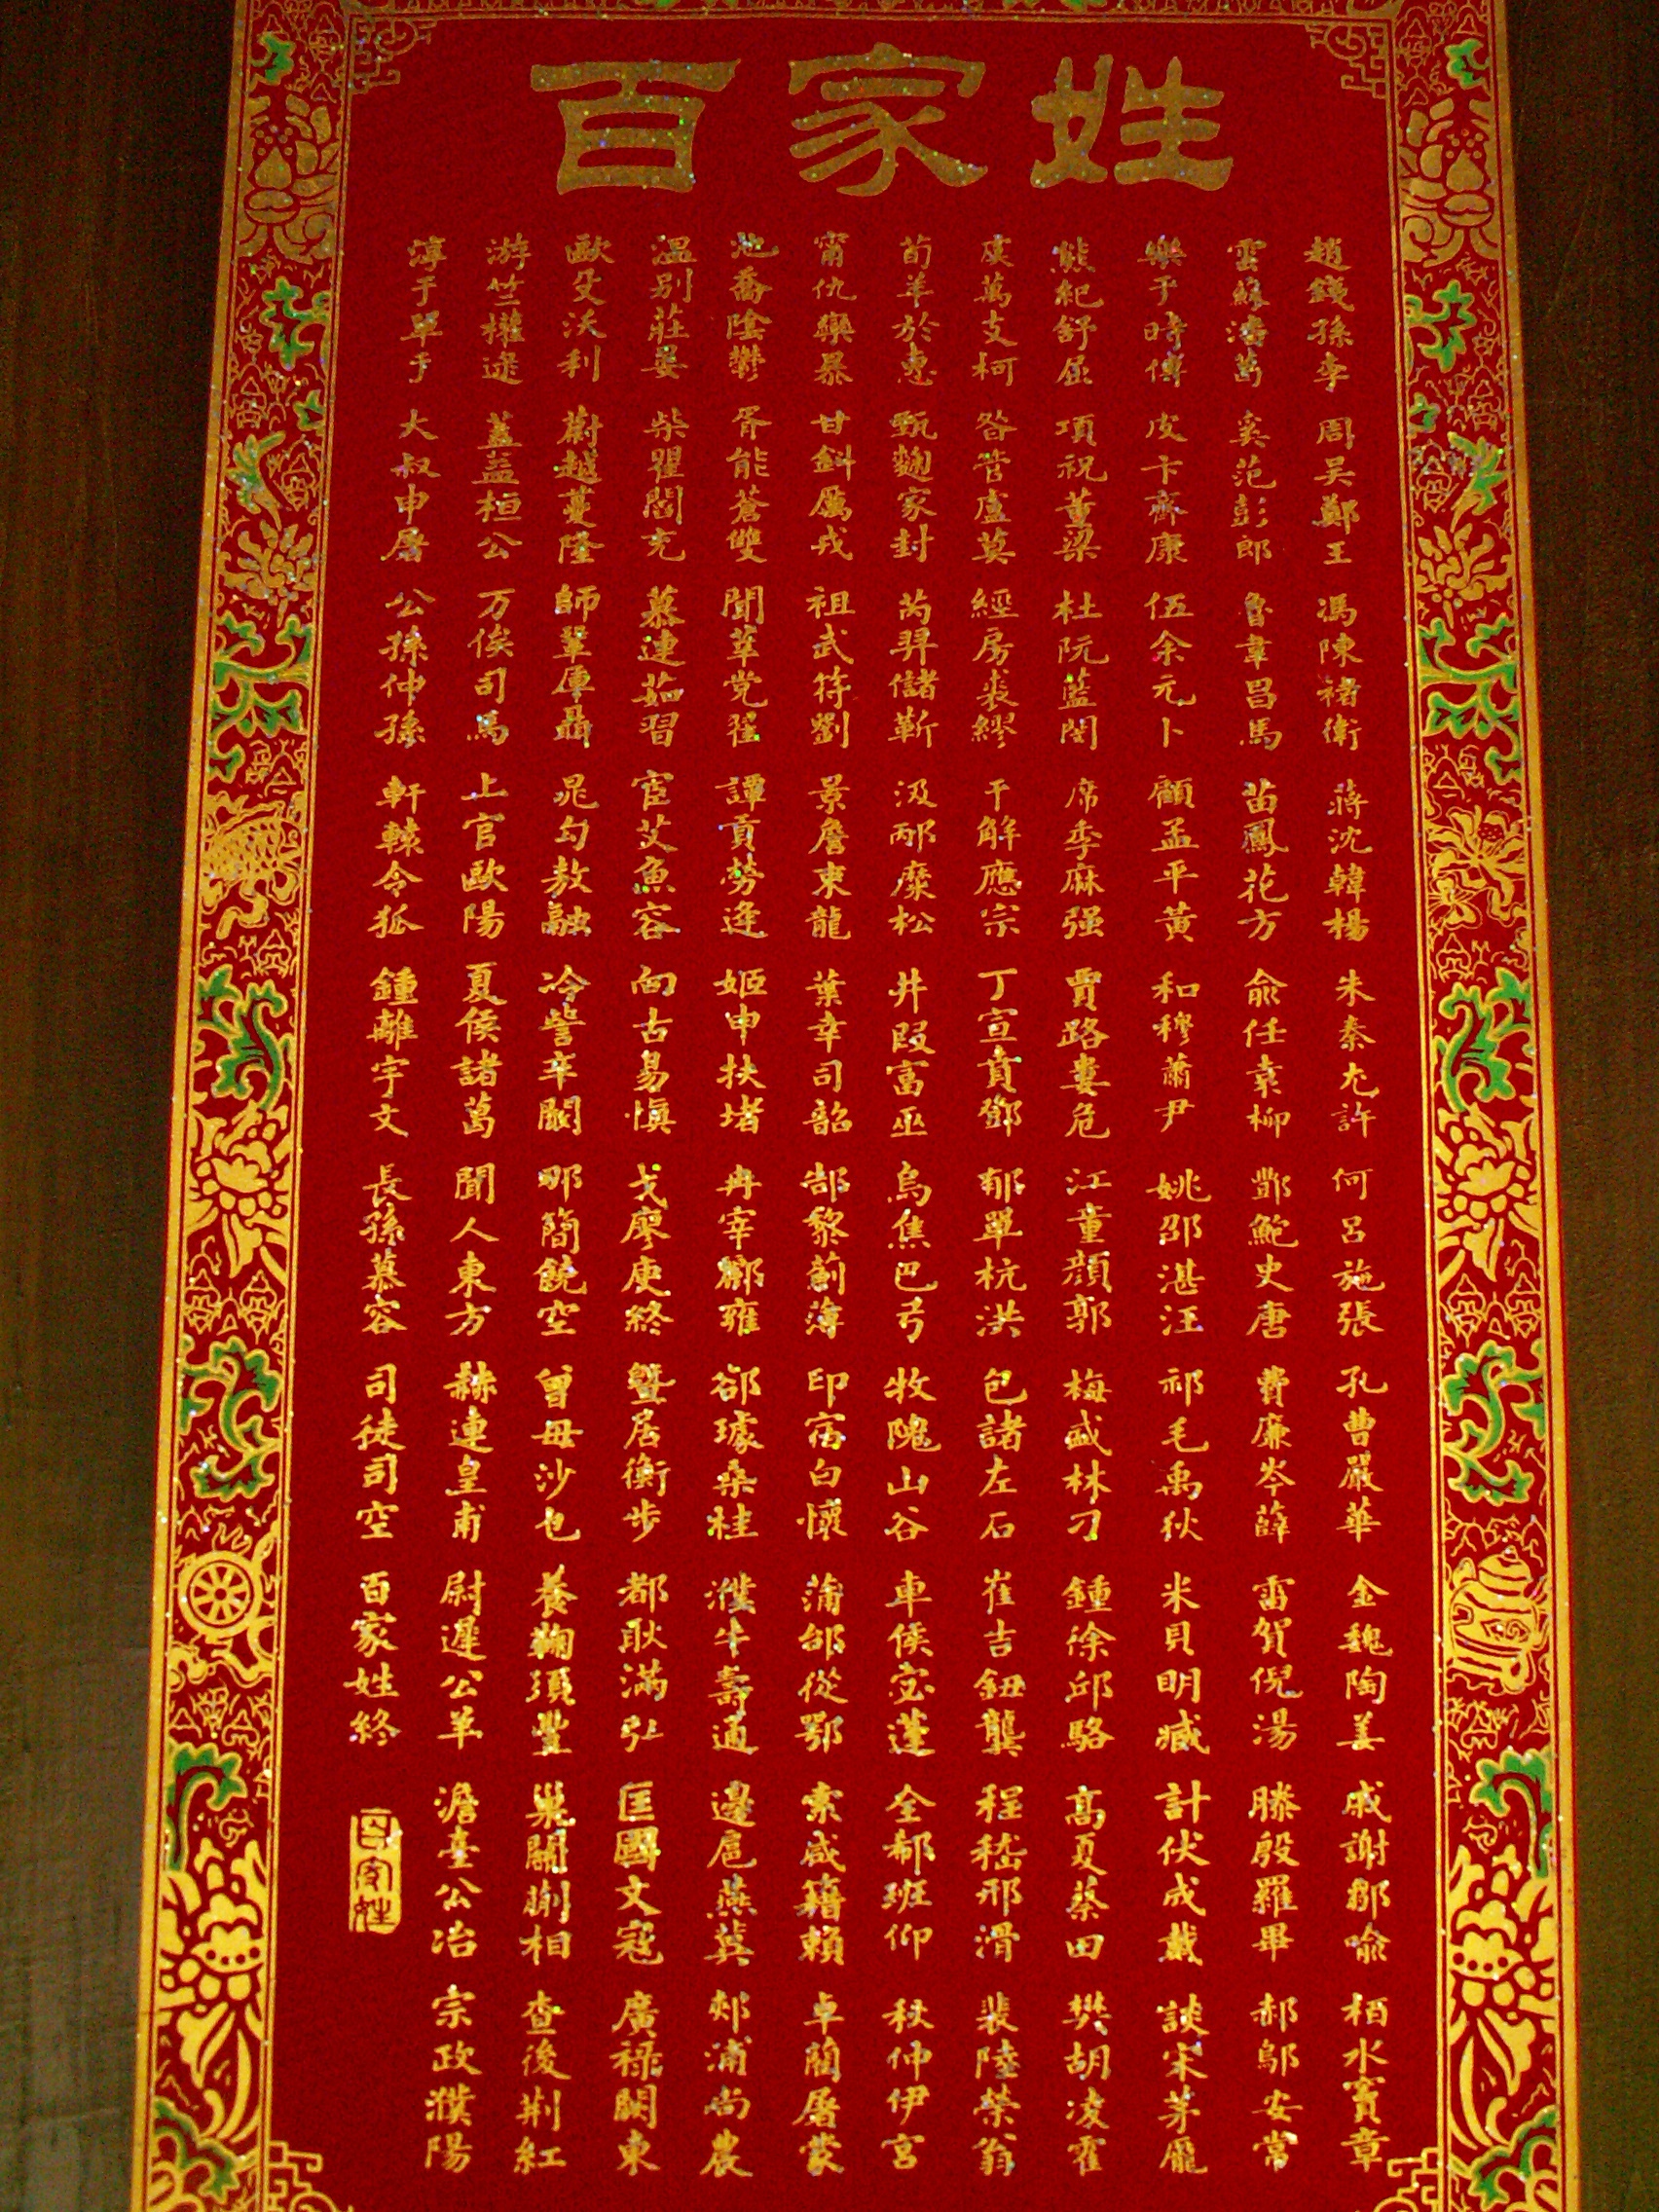 百家姓
趙錢孫李 周吳鄭王 馮陳褚衛 蔣沈韓楊 朱秦尤許 何呂施張 孔曹嚴華 金魏陶姜 戚謝鄒喻 栢水竇章
雲蘇潘葛 奚范彭郎 魯韋昌馬 苗鳳花方 俞任袁柳 酆鮑史唐 費廉岑薛 雷賀倪湯 滕殷羅畢 郝鄔安常
樂于時傅 皮卞齊康 伍余元卜 顧孟平黃 和穆蕭尹 姚邵湛汪 祁毛禹狄 米貝明臧 計伏成戴 談宋茅龐
熊紀舒屈 項祝董梁 杜阮藍閔 席季麻强 賈路婁危 江童顏郭 梅盛林刁 鍾徐邱駱 高夏蔡田 樊胡凌霍
虞萬支柯 昝管盧莫 經房裘繆 干解應宗 丁宣賁鄧 郁單杭洪 包諸左石 崔吉鈕龔 程嵇邢滑 裴陸榮翁
荀羊於惠 甄麴家封 芮羿儲靳 汲邴糜松 井段富巫 烏焦巴弓 牧隗山谷 車侯宓蓬 全郗班仰 秋仲伊宮
甯仇欒暴 甘鈄厲戎 祖武符劉 景詹束龍 葉幸司韶 郜黎薊薄 印宿白懷 蒲邰從鄂 索咸籍賴 卓藺屠蒙
池喬陰鬱 胥能蒼雙 聞莘党翟 譚貢勞逄 姬申扶堵 冉宰酈雍 郤璩桑桂 濮牛壽通 邊扈燕冀 郟浦尚農
溫別莊晏 柴瞿閻充 慕連茹習 宦艾魚容 向古易慎 戈廖庾終 暨居衡步 都耿滿弘 匡國文寇 廣祿闕東
歐殳沃利 蔚越夔隆 師鞏厙聶 晁勾敖融 冷訾辛闞 那簡饒空 曾毋沙乜 養鞠須豐 巢關蒯相 查後荆紅
游竺權逯 蓋益桓公 万俟司馬 上官歐陽 夏侯諸葛 聞人東方 赫連皇甫 尉遲公羊 澹臺公冶 宗政濮陽
淳于單于 大叔申屠 公孫仲孫 軒轅令狐 鍾離宇文 長孫慕容 司徒司空 百家姓終
百家姓